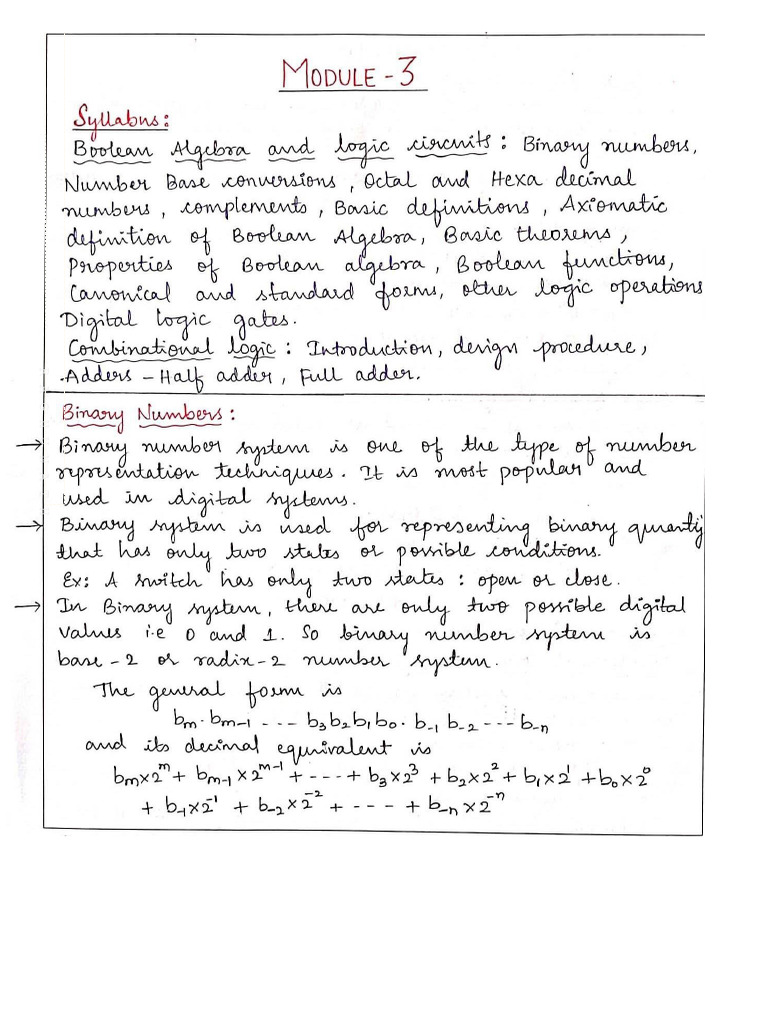 MODULE - 3
Syllabus:
Boolean Algebra and logic circuits : Binary numbers,
Number Base conversions, Octal and Hexa decimal
numbers, complements, Basic definitions, Axiomatic
definition of Boolean Algebra, Basic theorems,
Properties of Boolean algebra, Boolean functions,
Canonical and standard forms, other logic operations
Digital logic gates.
Combinational logic : Introduction, design procedure,
Adders - Half adder, Full adder.
Binary Numbers :
→ Binary number system is one of the type of number
representation techniques. It is most popular and
used in digital systems.
→ Binary system is used for representing binary quantity
that has only two states or possible conditions.
Ex: A switch has only two states : open or close.
→ In Binary system, there are only two possible digital
values i.e 0 and 1. So binary number system is
base-2 or radix-2 number system.
The general form is
bₘ. bₘ₋₁ ---- b₃b₂b₁b₀. b₋₁ b₋₂ --- b₋ₙ
and its decimal equivalent is
bₘ×2ᵐ + bₘ₋₁×2ᵐ⁻¹ + ---- + b₃×2³ + b₂×2² + b₁×2¹ + b₀×2⁰
+ b₋₁×2⁻¹ + b₋₂×2⁻² + --- + b₋ₙ×2⁻ⁿ